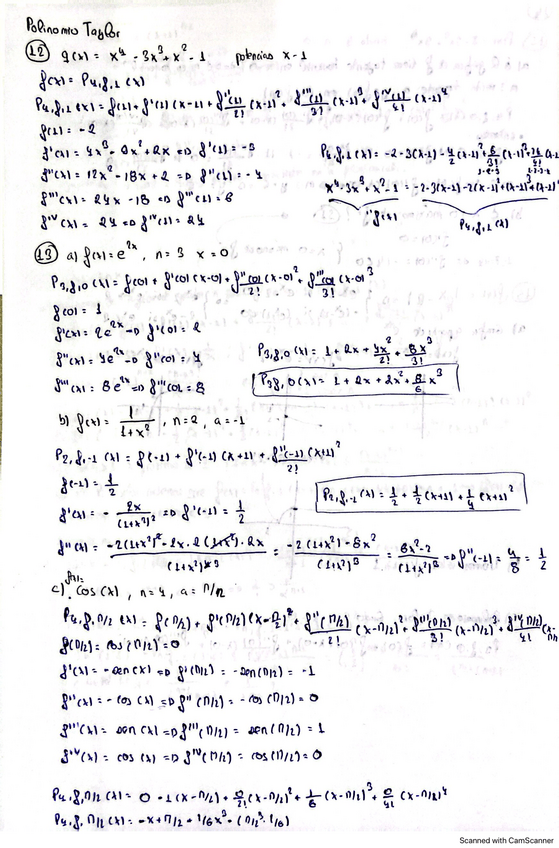 Polinomio Taylor
12 g(x) = x⁴ - 3x³ + x² - 1 potencias x-1
f(x) = P₄,f,₁(x)
P₄,f,₁(x) = f(1) + f'(1)(x-1) + f''(1)/2! (x-1)² + f'''(1)/3! (x-1)³ + f^IV(1)/4! (x-1)⁴
f(1) = -2
f'(x) = 4x³ - 9x² + 2x => f'(1) = -3
f''(x) = 12x² - 18x + 2 => f''(1) = -4
f'''(x) = 24x - 18 => f'''(1) = 6
f^IV(x) = 24 => f^IV(1) = 24
P₄,f,₁(x) = -2-3(x-1) - 4/2 (x-1)² + 6/3! (x-1)³ + 24/4! (x-1)
x⁴-3x³+x²-1 = -2-3(x-1)-2(x-1)²+(x-1)³+(x-1)⁴
f(x) P₄,f,₁(x)
13 a) f(x) = e^2x, n=3 x=0
P₃,f,₀(x) = f(0) + f'(0)(x-0) + f''(0)/2! (x-0)² + f'''(0)/3! (x-0)³
f(0) = 1
f'(x) = 2e^2x => f'(0) = 2
f''(x) = 4e^2x => f''(0) = 4
f'''(x) = 8e^2x => f'''(0) = 8
P₃,f,₀(x) = 1 + 2x + 4x²/2! + 8x³/3!
P₃,f,₀(x) = 1 + 2x + 2x² + 8/6 x³
b) f(x) = 1/(1+x²), n=2, a=-1
P₂,f,₋₁(x) = f(-1) + f'(-1)(x+1) + f''(-1)/2! (x+1)²
f(-1) = 1/2
f'(x) = - 2x/(1+x²)² => f'(-1) = 1/2
P₂,f,₋₁(x) = 1/2 + 1/2 (x+1) + 1/4 (x+1)²
f''(x) = = -2(1+x²) - 8x²/(1+x²)³ = 6x²-2/(1+x²)³ => f''(-1) = 4/8 = 1/2
f(x)=
c) cos(x), n=4, a=π/2
P₄,f,π/2(x) = f(π/2) + f'(π/2)(x-π/2) + f''(π/2)/2! (x-π/2)² + f'''(π/2)/3! (x-π/2)³ + f^IV(π/2)/4!
f(π/2) = cos(π/2) = 0
f'(x) = -sen(x) => f'(π/2) = -sen(π/2) = -1
f''(x) = -cos(x) => f''(π/2) = -cos(π/2) = 0
f'''(x) = sen(x) => f'''(π/2) = sen(π/2) = 1
f^IV(x) = cos(x) => f^IV(π/2) = cos(π/2) = 0
P₄,f,π/2(x) = 0 - 1(x-π/2) + 0/2! (x-π/2)² + 1/6 (x-π/2)³ + 0/4! (x-π/2)⁴
P₄,f,π/2(x) = -x + π/2 + 1/6x³ - (π/2³·1/6)
Scanned with CamScanner